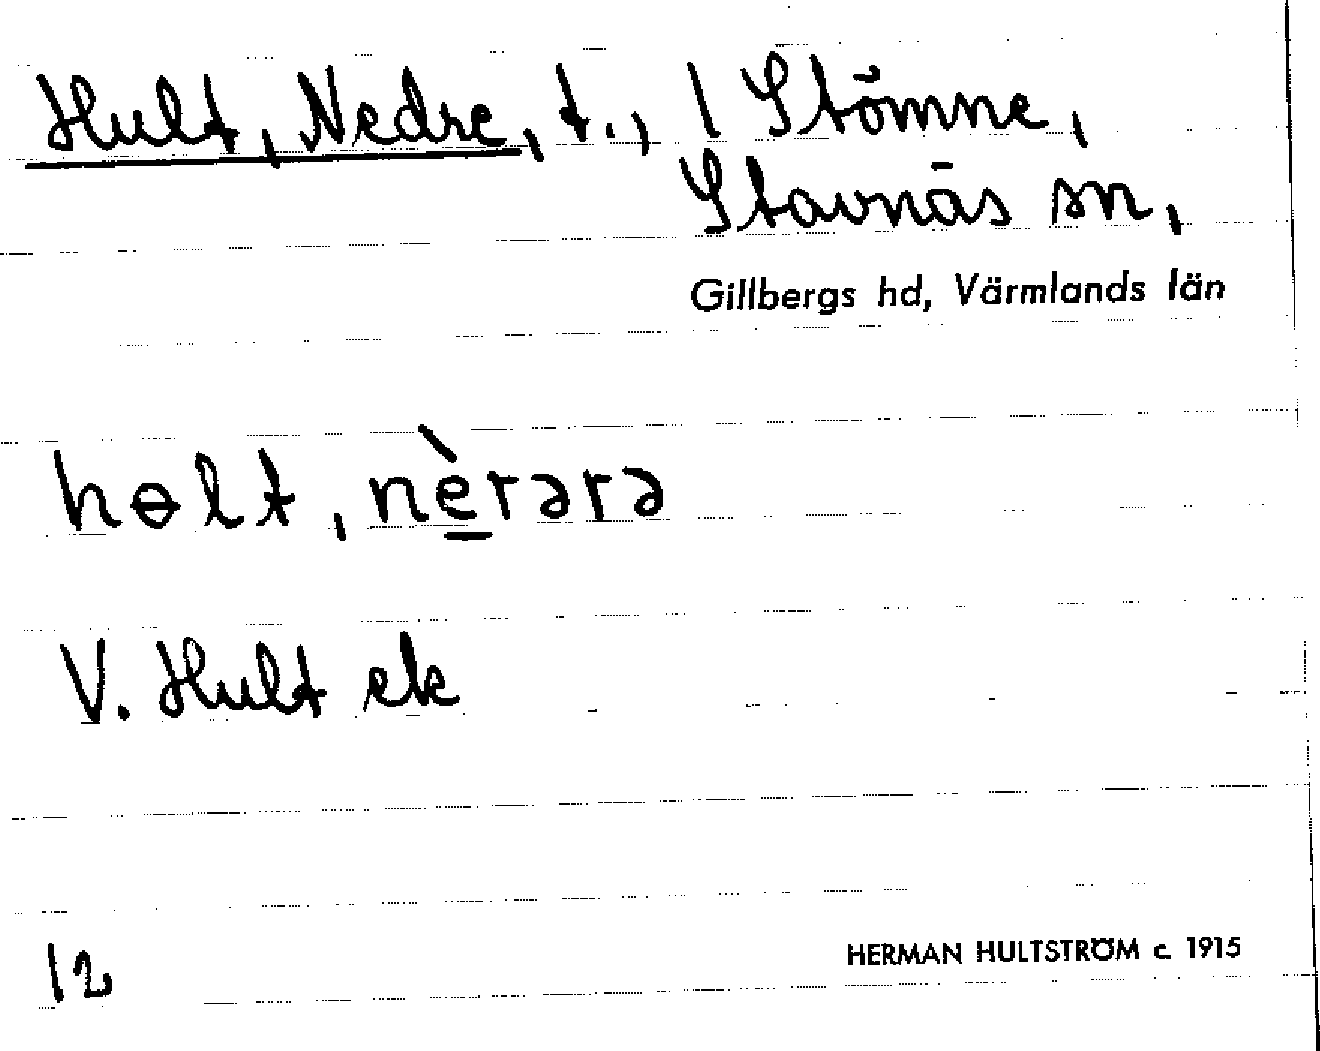 Hult, Nedre, t., 1 Stömne,
Stavnäs sn,
Gillbergs hd, Värmlands län
hɵlt, nèrərə
V. Hult ek
12
HERMAN HULTSTRÖM c. 1915